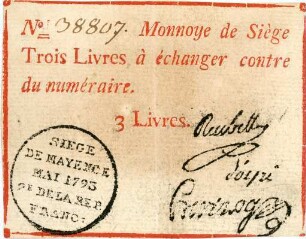 No 38807. Monnoye de Siège
Trois Livres à échanger contre
du numéraire.
3 Livres.
SIEGE
DE MAYENCE
MAI 1793
2e DE LA REP.
FRANÇ.